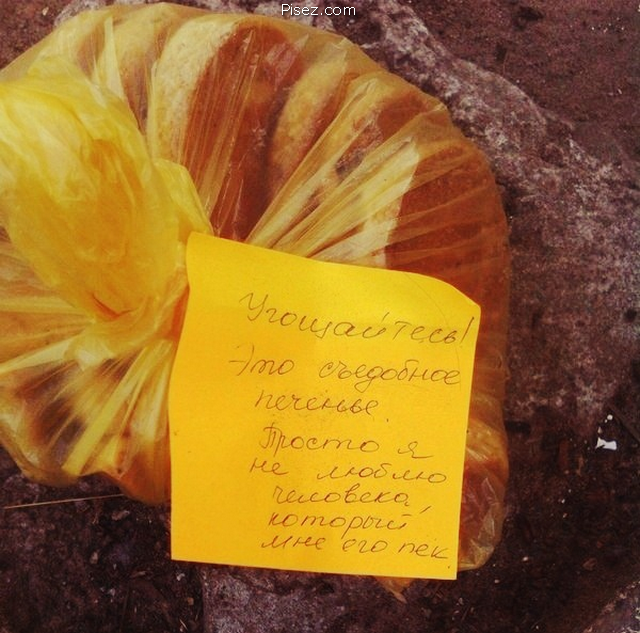 Pisez.com
Угощайтесь!
Это съедобное
печенье.
Просто я
не люблю
человека,
который
мне его пек.